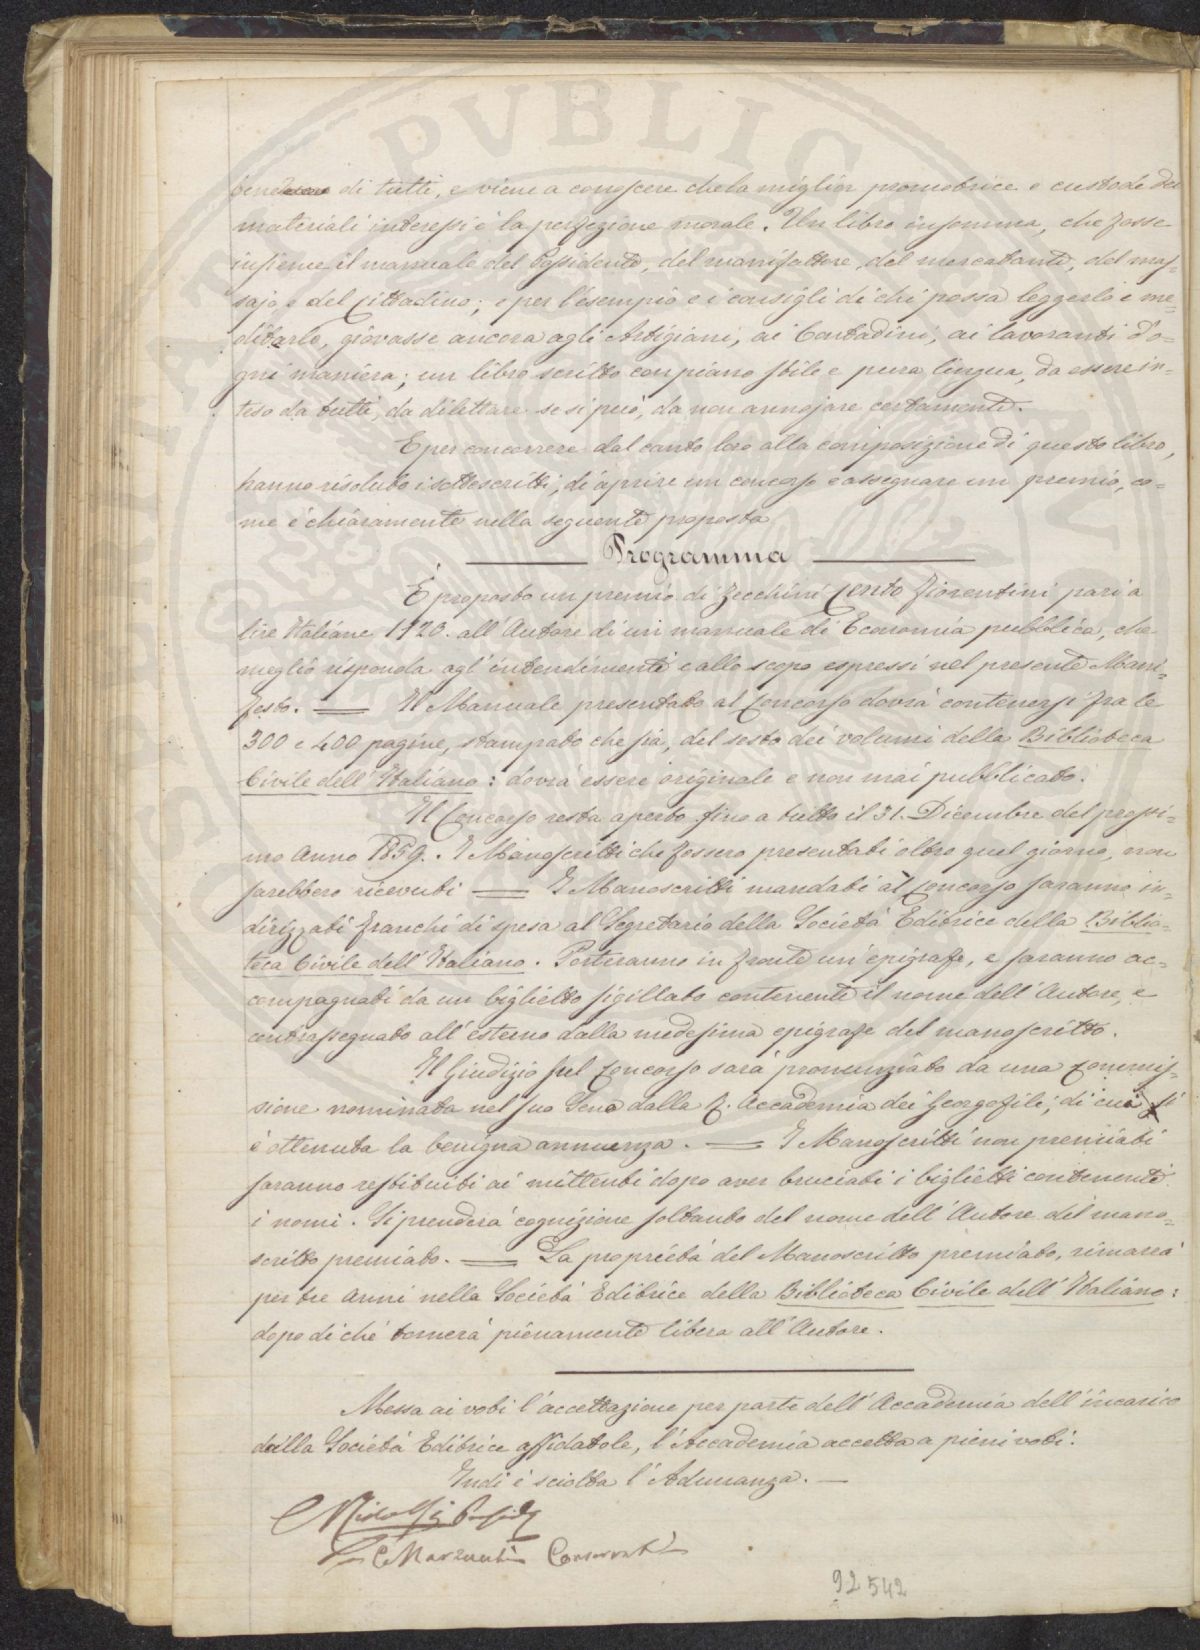 bene di tutti, e viene a conoscere che la miglior promotrice e custode dei
materiali interessi è la perfezione morale. Un libro insomma, che fosse
insieme il manuale del Possidente, del manifattore, del mercatante, del mas-
sajo e del Cittadino; e per l'esempio e i consigli di chi possa leggerlo e me-
ditarlo, giovasse ancora agli Artigiani, ai Contadini, ai lavoranti d'o-
gni maniera; un libro scritto con piano stile e pura lingua, da essere in-
teso da tutti, da dilettare se si può, da non annojare certamente.
E per concorrere dal canto loro alla composizione di questo libro,
hanno risoluto i sottoscritti, di aprire un concorso e assegnare un premio, co-
me è chiaramente nella seguente proposta
Programma
È proposto un premio di Zecchini Cento Fiorentini pari a
lire Italiane 1120. all'Autore di un manuale di Economia pubblica, che
meglio risponda agl'intendimenti e allo scopo espressi nel presente Mani-
festo. = Il Manuale presentato al Concorso dovrà contenersi fra le
300 e 400 pagine, stampato che sia, del sesto dei volumi della Biblioteca
Civile dell'Italiano: dovrà essere originale e non mai pubblicato.
Il Concorso resta aperto fino a tutto il 31. Dicembre del prossi-
mo Anno 1859. I Manoscritti che fossero presentati oltre quel giorno, non
sarebbero ricevuti = I Manoscritti mandati al Concorso saranno in-
dirizzati franchi di spesa al Segretario della Società Editrice della Biblio-
teca Civile dell'Italiano. Porteranno in fronte un'epigrafe, e saranno ac-
compagnati da un biglietto sigillato contenente il nome dell'Autore, e
contrassegnato all'esterno dalla medesima epigrafe del manoscritto.
Il Giudizio sul Concorso sarà pronunziato da una Commis-
sione nominata nel suo Seno dalla R. Accademia dei Georgofili; di cui si
è ottenuta la benigna annuenza. = I Manoscritti non premiati
saranno restituiti ai mittenti dopo aver bruciati i biglietti contenenti
i nomi. Si prenderà cognizione soltanto del nome dell'Autore del mano-
scritto premiato. = La proprietà del Manoscritto premiato, rimarrà
per tre Anni nella Società Editrice della Biblioteca Civile dell'Italiano:
dopo di che tornerà pienamente libera all'Autore.
Messa ai voti l'accettazione per parte dell'Accademia dell'incarico
dalla Società Editrice affidatole, l'Accademia accetta a pieni voti.
Indi è sciolta l'Adunanza. —
C Ridolfi
92542
PVBLICA